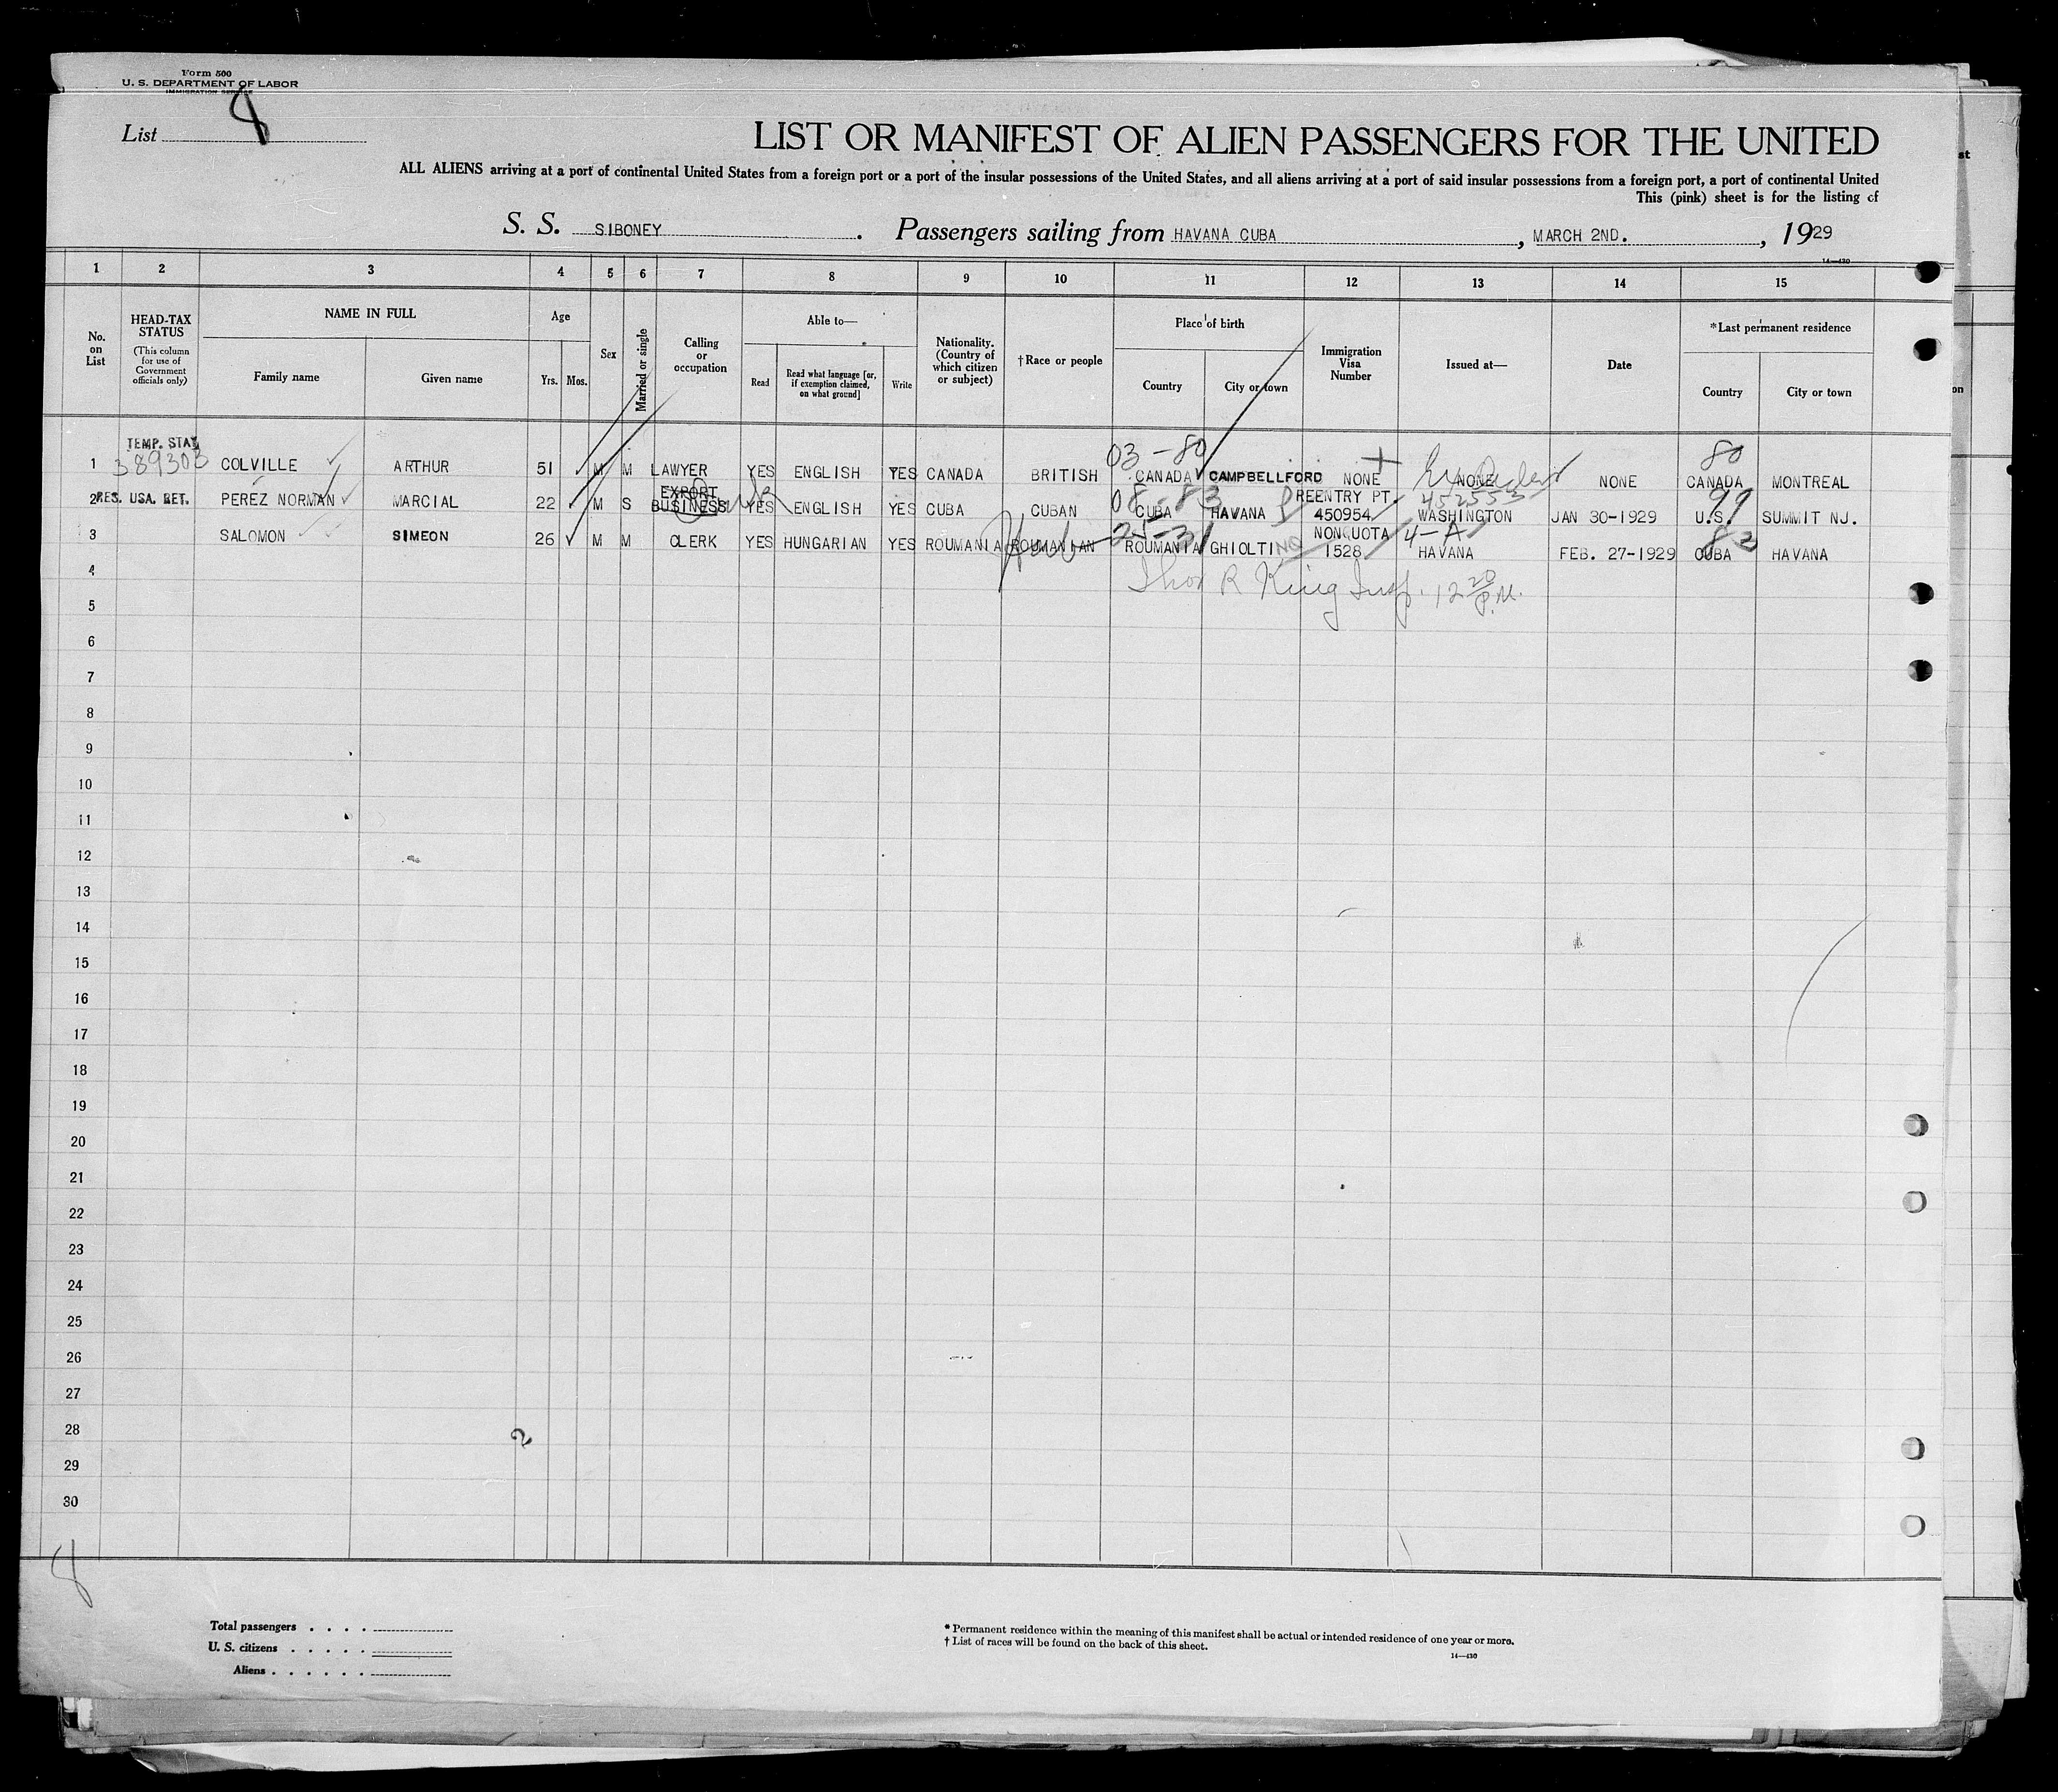 Form 500
U. S. DEPARTMENT OF LABOR
IMMIGRATION SERVICE
List 8
LIST OR MANIFEST OF ALIEN PASSENGERS FOR THE UNITED
ALL ALIENS arriving at a port of continental United States from a foreign port or a port of the insular possessions of the United States, and all aliens arriving at a port of said insular possessions from a foreign port, a port of continental United
This (pink) sheet is for the listing of
S. S. SIBONEY. Passengers sailing from HAVANA CUBA, MARCH 2ND., 1929
14—430
1 2 3 4 5 6 7 8 9 10 11 12 13 14 15
No. on List
HEAD-TAX STATUS
(This column for use of Government officials only)
NAME IN FULL
Family name Given name
Age
Yrs. Mos.
Sex
Married or single
Calling or occupation
Able to—
Read
Read what language [or, if exemption claimed, on what ground]
Write
Nationality. (Country of which citizen or subject)
†Race or people
Place of birth
Country City or town
Immigration Visa Number
Issued at—
Date
*Last permanent residence
Country City or town
TEMP. STAY 03-80 80
1 389303 COLVILLE ARTHUR 51 M M LAWYER YES ENGLISH YES CANADA BRITISH CANADA CAMPBELLFORD NONE NONE NONE CANADA MONTREAL
EXPORT 08-83 REENTRY PT 452553 99
2 RES. USA. RET. PEREZ NORMAN MARCIAL 22 M S BUSINESS YES ENGLISH YES CUBA CUBAN CUBA HAVANA P 450954 WASHINGTON JAN 30-1929 U.S. SUMMIT NJ.
25-31 NONQUOTA 4-A 83
3 SALOMON SIMEON 26 M M CLERK YES HUNGARIAN YES ROUMANIA ROUMANIAN Heb ROUMANIA GHIOLTI NQ 1528 HAVANA FEB. 27-1929 CUBA HAVANA
Thos R King Insp. 12 20 P.M.
4
5
6
7
8
9
10
11
12
13
14
15
16
17
18
19
20
21
22
23
24
25
26
27
28
2
29
30
8
Total passengers . . . .
U. S. citizens . . . . .
Aliens . . . . . .
* Permanent residence within the meaning of this manifest shall be actual or intended residence of one year or more.
† List of races will be found on the back of this sheet.
14—430